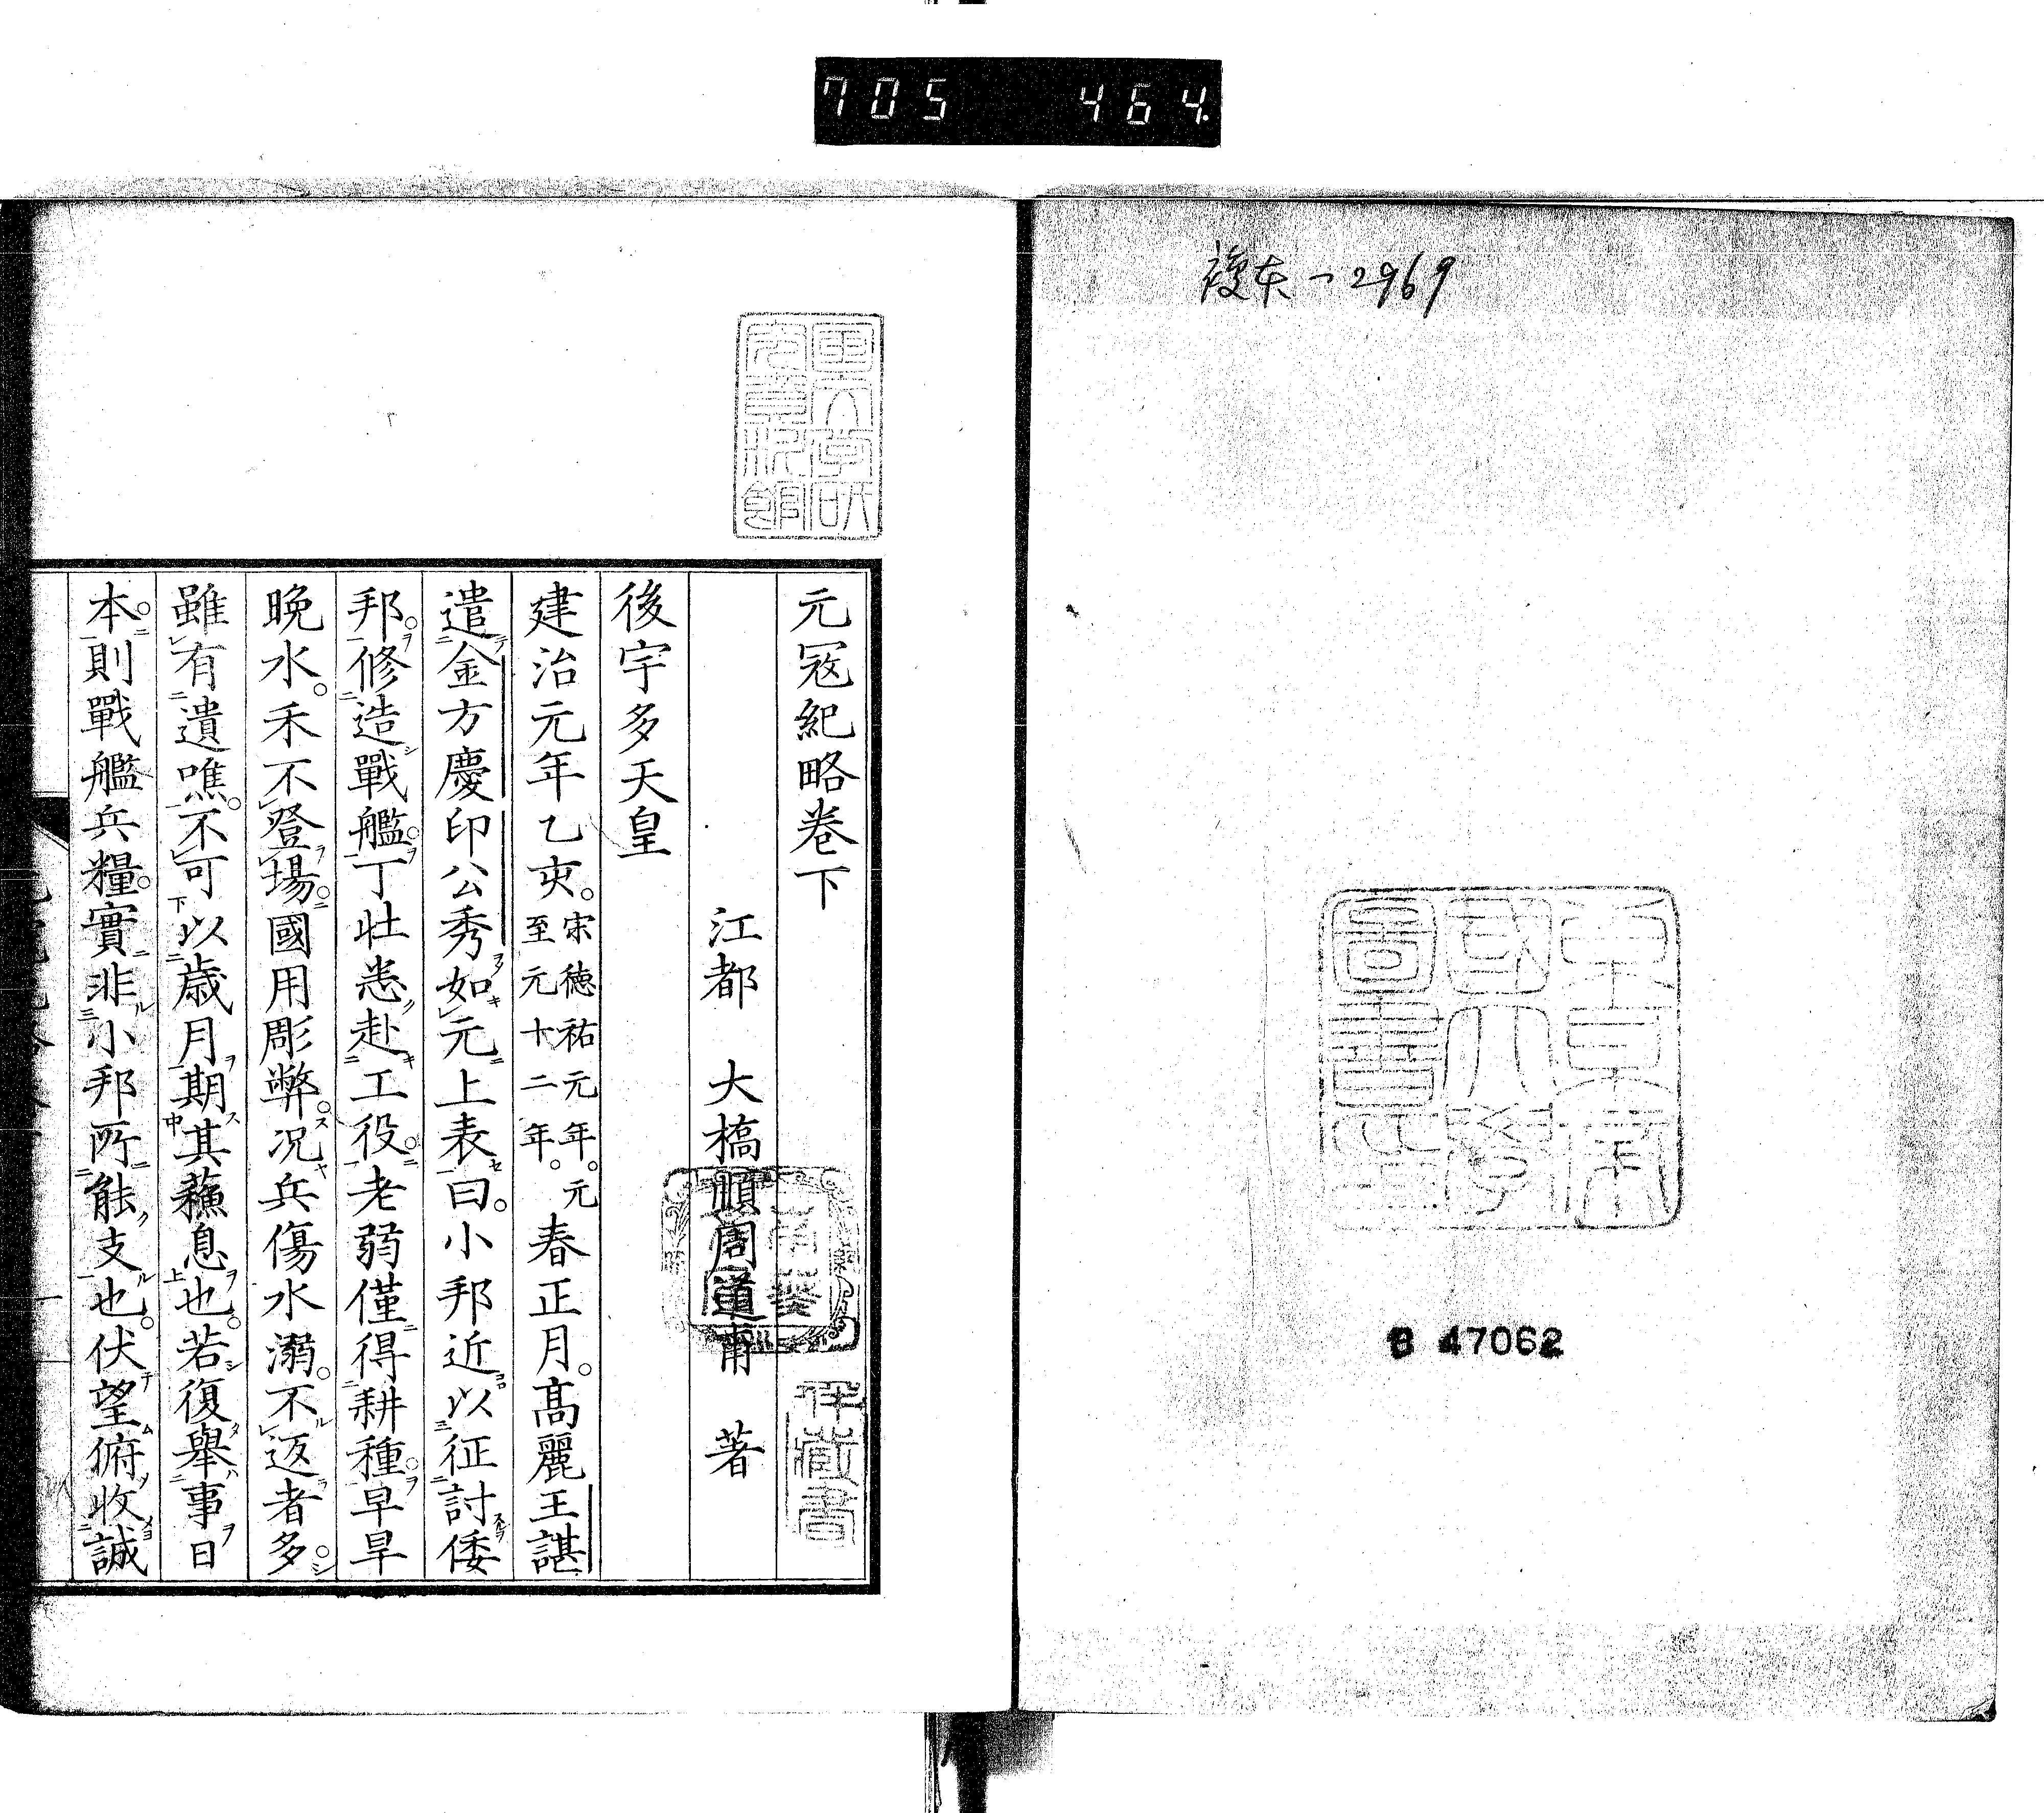 705 464.
複本-2969
東京帝
國大學
圖書印
B 47062
元寇紀略卷下
江都 大橋順周道甫 著
後宇多天皇
建治元年乙亥。宋德祐元年。元至元十二年。春正月。高麗王諶
遣金方慶印公秀如元上表曰。小邦近以征討倭
邦。修造戰艦。丁壯悉赴工役。老弱僅得耕種。早旱
晚水。禾不登場。國用彫弊。况兵傷水溺。不返者多。
雖有遺噍。不可以歲月期其蘓息也。若復舉事日
本。則戰艦兵糧。實非小邦所能支也。伏望俯收誠